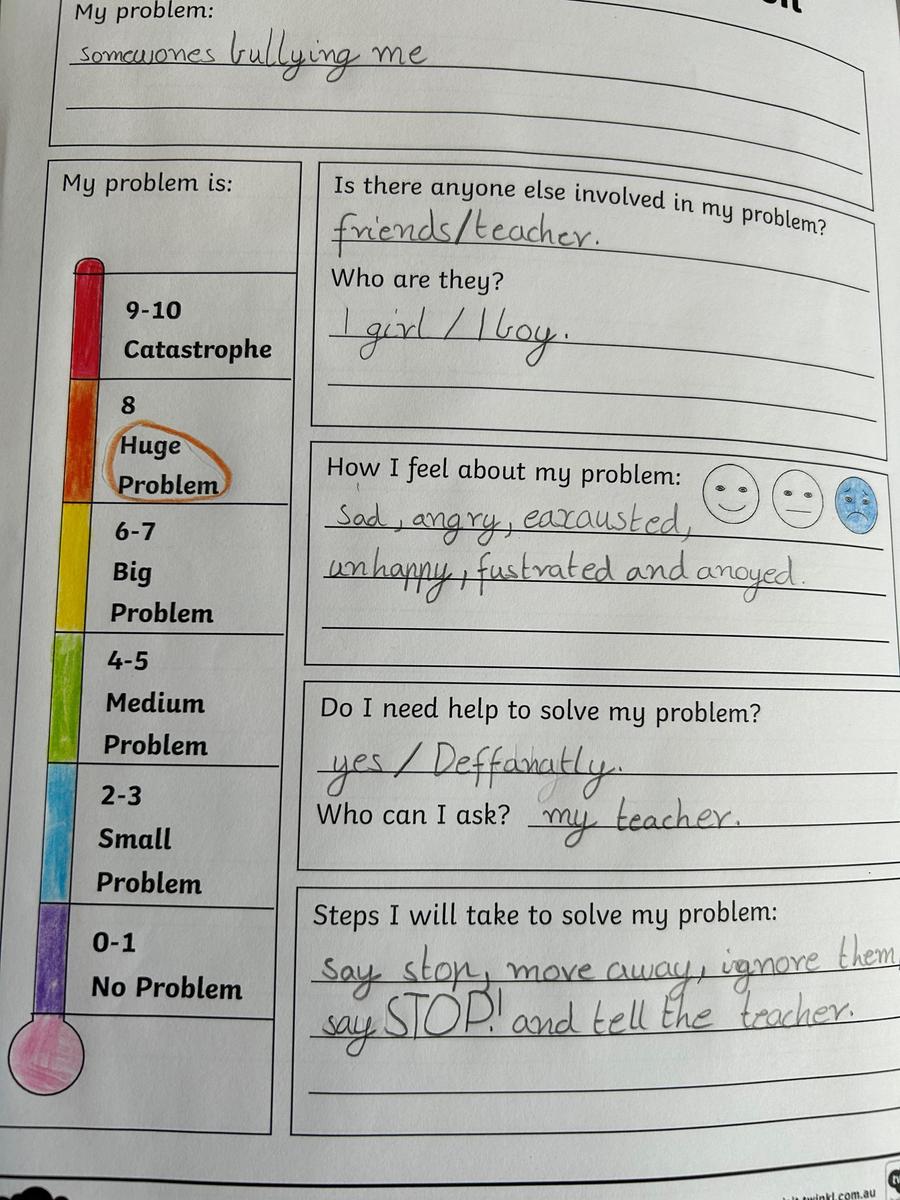 My problem:
somewones bullying me
My problem is:
9-10
Catastrophe
8
Huge
Problem
6-7
Big
Problem
4-5
Medium
Problem
2-3
Small
Problem
0-1
No Problem
Is there anyone else involved in my problem?
friends/teacher.
Who are they?
1 girl / 1 boy.
How I feel about my problem:
sad, angry, eaxausted,
unhappy, fustrated and anoyed.
Do I need help to solve my problem?
yes / Deffanatly.
Who can I ask? my teacher.
Steps I will take to solve my problem:
say stop, move away, ignore them
say STOP! and tell the teacher.
twinkl.com.au